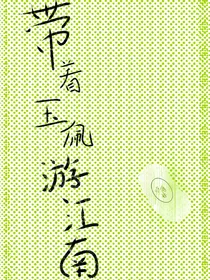 带着玉佩游江南